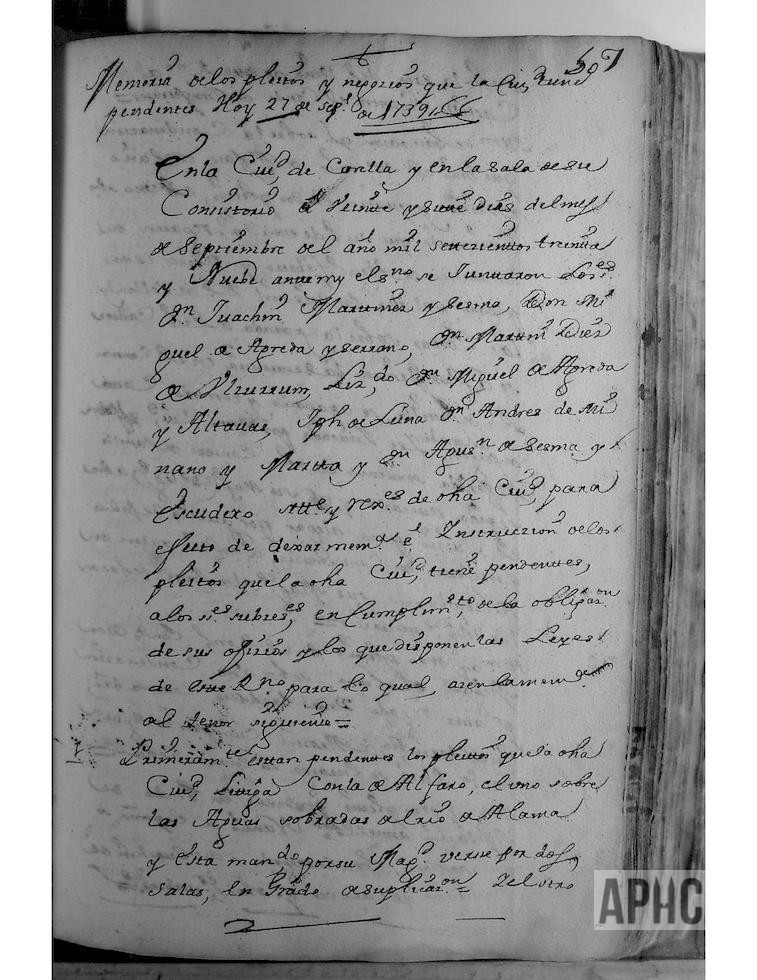 507
Memoria de los pleitos y negocios que la Ciud tiene
pendentes Hoy 27 de sepe de 1739,
En la Ciud, de Corella y en la sala de su
Consistorio a Veinte y siete dias del mes
de Septiembre del año mil setecientos treinta
y Nuebe ante my el sno se Juntaron Los ses
Dn Juachin Martinez y Sesma, Don Mi
guel de Agreda y serrano, Dn Martin Diez
de Vlzurrum, Lizdo Dn Miguel de Agreda
y Altauas, Jph de Luna Dn Andres de Mi
ñano y Marta y Dn Agusn de Sesma y
Escudero Alle y rexes de dha Ciud, para
efecto de dexar mema e Instruccion de los
pleitos que la dha Ciud, tiene pendentes,
a los ss subcesses, en Cumplimto, de la obligazon
de sus oficios y los que disponen las Leyes
de este Rno para lo qual, acen la mem
al tenor siguiente =
Primeramte estan pendentes los pleitos que la dha
Ciud, Litiga Con la de Alfaro, el uno sobre
las Aguas sobradas al rio de Alama
y esta mando por su Magd verse por dos
salas, en Grado de suplicazon = Y el otro
APHC